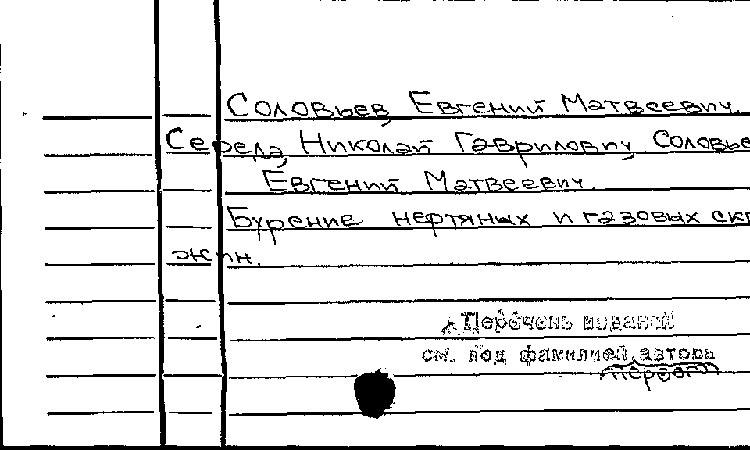 Соловьев, Евгений Матвеевич.
Середа, Николай Гаврилович, Соловье
Евгений Матвеевич.
Бурение нефтяных и газовых скв
жин.
Перечень изданий
см. под фамилией автора